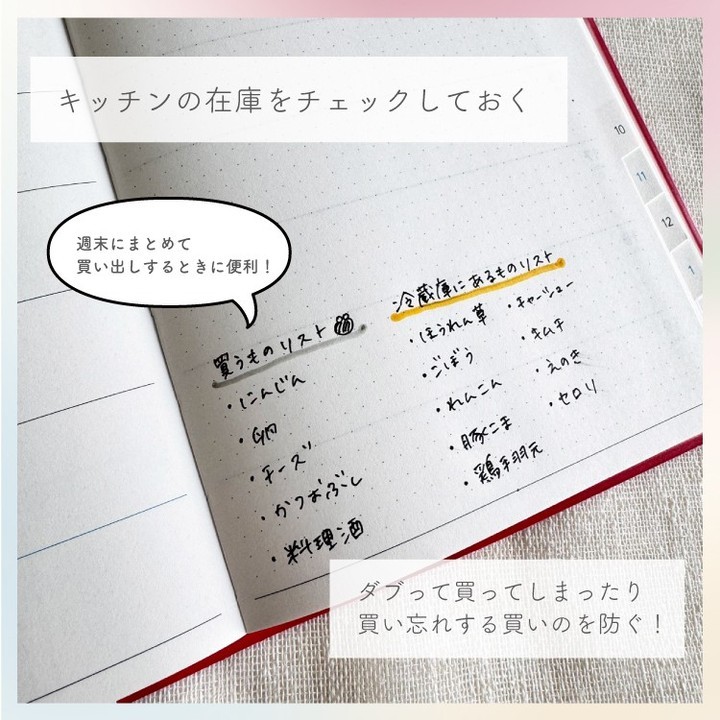 キッチンの在庫をチェックしておく
週末にまとめて
買い出しするときに便利！
買うものリスト
・にんじん
・卵
・チーズ
・かつおぶし
・料理酒
冷蔵庫にあるものリスト
・ほうれん草
・ごぼう
・れんこん
・豚こま
・鶏手羽元
・チャーシュー
・キムチ
・えのき
・セロリ
10
11
12
1
ダブって買ってしまったり
買い忘れする買いのを防ぐ！